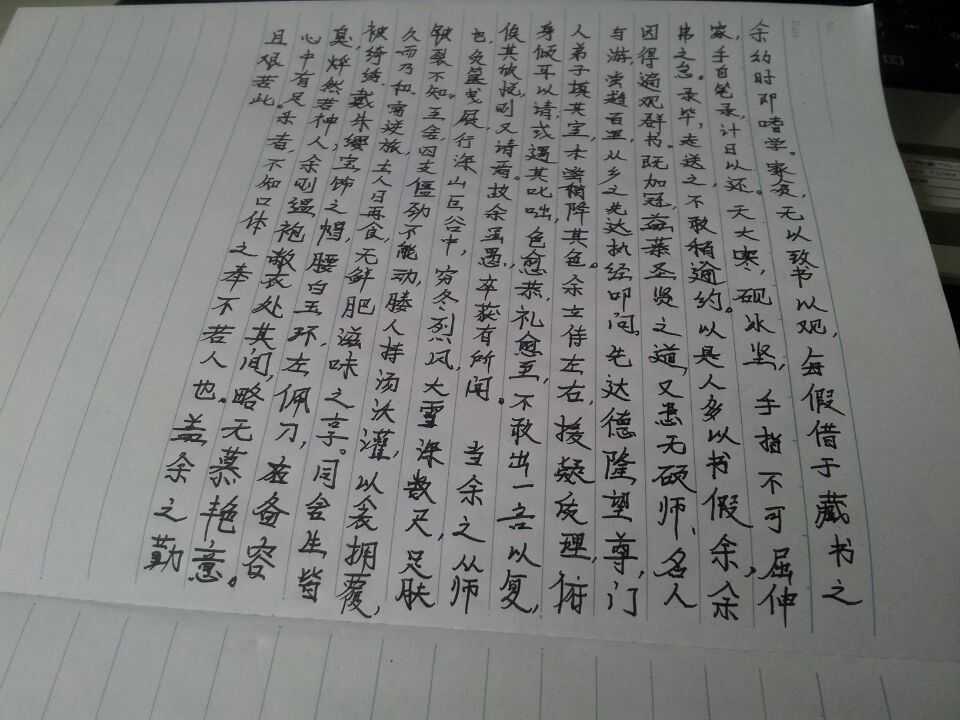 余幼时即嗜学。家贫,无以致书以观,每假借于藏书之
家,手自笔录,计日以还。天大寒,砚冰坚,手指不可屈伸
弗之怠。录毕,走送之,不敢稍逾约。以是人多以书假余,余
因得遍观群书。既加冠,益慕圣贤之道,又患无硕师、名人
与游,尝趋百里,从乡之先达执经叩问。先达德隆望尊,门
人弟子填其室,未稍降其色。余立侍左右,援疑质理,俯
身倾耳以请;或遇其叱咄,色愈恭,礼愈至,不敢出一言以复,
俟其欣悦,则又请焉。故余虽愚,卒获有所闻。 当余之从师
也,负箧曳屣,行深山巨谷中,穷冬烈风,大雪深数尺,足肤
皲裂不知。至舍,四支僵劲不能动,媵人持汤沃灌,以衾拥覆,
久而乃和。寓逆旅,主人日再食,无鲜肥滋味之享。同舍生皆
被绮绣,戴朱缨宝饰之帽,腰白玉环,左佩刀,右备容
臭,烨然若神人,余则缊袍敝衣处其间,略无慕艳意。
心中有足乐者,不知口体之奉不若人也。盖余之勤
且艰若此。